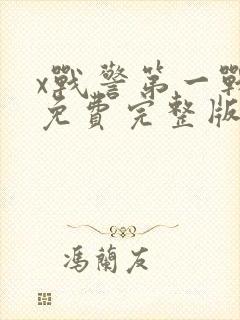 x戰警第一戰
免費完整版
馮蘭友